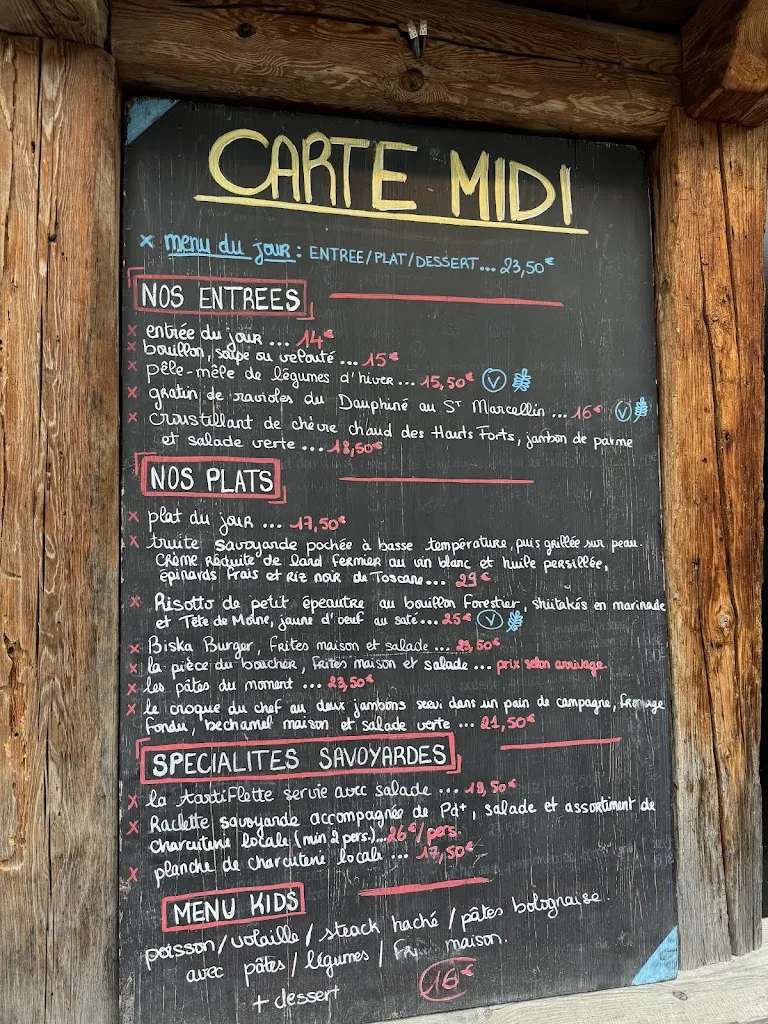 CARTE MIDI
x menu du jour : ENTREE/PLAT/DESSERT... 23,50€
NOS ENTREES
x entrée du jour ... 14€
x bouillon, soupe ou velouté ... 15€
x pêle-mêle de légumes d'hiver ... 15,50€ V
x gratin de ravioles du Dauphiné au ST Marcellin ... 16€ V
x croustillant de chèvre chaud des Hauts Forts, jambon de parme
et salade verte .... 18,50€
NOS PLATS
x plat du jour ... 17,50€
x truite savoyarde pochée à basse température, puis grillée sur peau.
Crème réduite de lard fermier au vin blanc et huile persillée,
épinards frais et Riz noir de Toscane... 29€
x Risotto de petit épeautre au bouillon Forestier, shiitakés en marinade
et Tête de Moine, jaune d'oeuf au saté... 25€ V
x Biska Burger, frites maison et salade ... 23,50€
x la pièce du boucher, frites maison et salade ... prix selon arrivage.
x les pâtes du moment ... 23,50€
x le croque du chef au deux jambons servi dans un pain de campagne, fromage
fondu, bechamel maison et salade verte ... 21,50€
SPECIALITES SAVOYARDES
x la tartiflette servie avec salade ... 19,50€
x Raclette savoyarde accompagnée de Pdt, salade et assortiment de
charcuterie locale (min 2 pers.)...26€/pers.
x planche de charcuterie locale ... 17,50€
MENU KIDS
poisson/volaille/steack haché/pâtes bolognaise.
avec pâtes/légumes/ maison.
+ dessert
16€